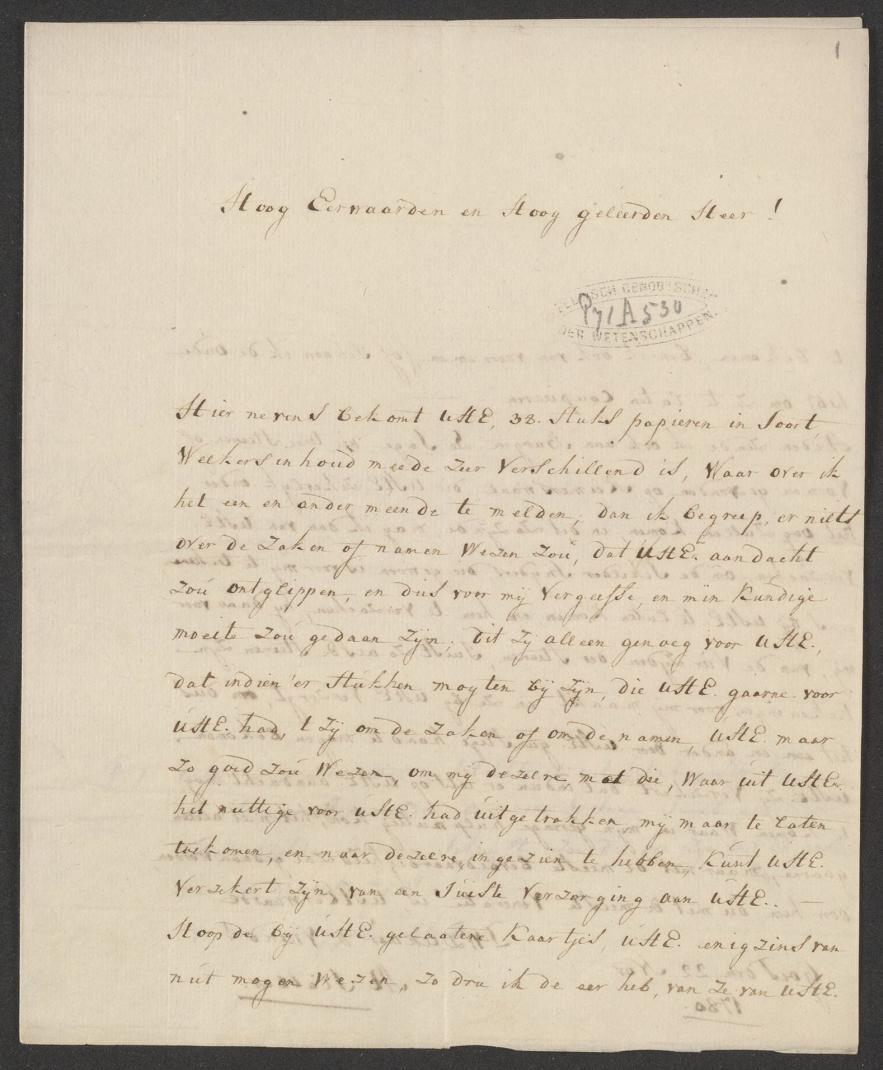 1
Hoog Eerwaarden en Hoog geleerden Heer!
GENOOTSCHAP
P71A530
DER WETENSCHAPPEN.
Hier nevens bekomt UHE, 38. stuks papieren in Soort,
Welkers inhoud meede zeer verschillend is, Waar over ik
het een en ander meende te melden, dan ik begreep, er niets
over de zaken of namen Wezen zoú, dat UHE. aandacht
zoú ontglippen, en dús voor mij vergeefse, en min kundige
moeite zoú gedaan zijn; dit zij alleen genoeg voor UHE.,
dat indien er stukken mogten bij zijn, die UHE. gaarne voor
UHE. had, 't zij om de zaken of om de namen, UHE. maar
zo goed zoú Wezen, om mij dezelve met die, Waar uit UHE.
het nuttige voor UHE. had úitgetrokken, mij maar te laten
toekomen, en naar dezelve ingezien te hebben kúnt UHE.
Verzekert zijn van een Júiste verzorging aan UHE.. —
Hoop de bij UHE. gelaatene kaartjes, UHE. enigzins van
nút mogen Wezen, zo dra ik de eer heb, van ze van UHE.